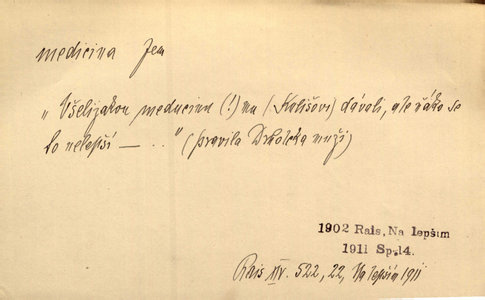 medicina fem
„Všelijakou meducinu (!) mu (Kališovi) dávali, ale ňáko se
to nelepší — . ." (pravila Drholcka muži)
1902 Rais, Na lepším
1911 Sp. 14.
Rais XIV. 522, 22, Na lepším 1911